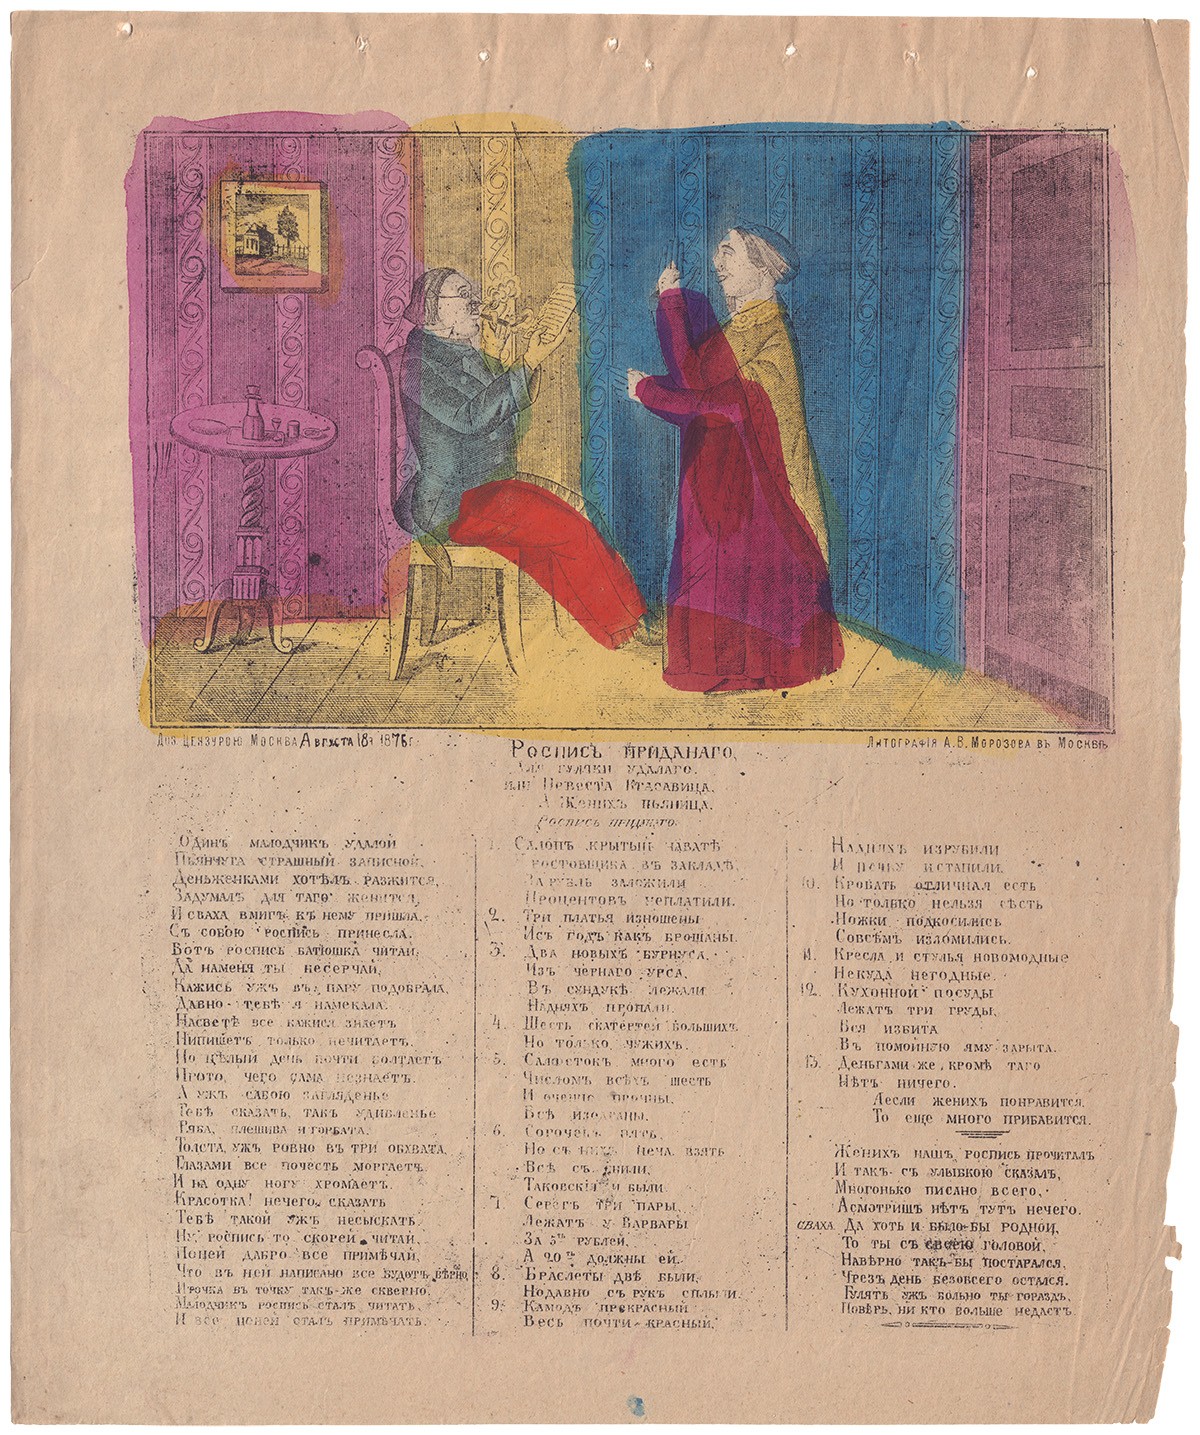 Доз Цензурою Москва Августа 18г 1876 г.
Литографія А. В. Морозова въ Москвѣ
Роспись приданаго,
Для гуляки удалаго.
или Невеста Красавица,
А Женихъ пьяница.
Роспись приданаго.
Одинъ малодчикъ удалой
Пьянчуга страшный записной,
Деньженками хотѣлъ разжится,
Задумалъ для таго женится,
И сваха вмигъ къ нему пришла,
Съ собою роспись принесла.
Вотъ роспись батюшка читай,
Да наменя ты несерчай,
Кажись ужъ въ пару подобрала,
Давно тебѣ я намекала.
Насветѣ все кажися знаетъ
Нипишетъ только нечитаетъ,
Но цѣлый день почти болтаетъ
Прото, чего сама незнаетъ.
А ужъ сабою загляденье
Тебѣ сказать, такъ удивленье
Ряба, плешива и горбата.
Толста ужъ ровно въ три обхвата,
Глазами все почесть моргаетъ.
И на одну ногу хромаетъ.
Красотка! нечего сказать
Тебѣ такой ужъ несыскать,
Ну роспись то скорей читай,
Поней дабро все примѣчай,
Что въ ней написано все будетъ вѣрно,
Точка въ точку такъ-же скверно,
Малодчикъ роспись сталъ читать,
И все поней сталъ примѣчать.
1. Салопъ крытый
Ростовщика въ закладѣ,
За рубль заложили
Процентовъ неплатили.
2. Три платья изношены
Исъ годъ какъ брошаны.
3. Два новыхъ бурнуса,
Чзъ чернаго урса,
Въ сундукѣ лежали
Надняхъ пропали.
4. Шесть скатертей большихъ
Но только чужихъ.
5. Салфетокъ много есть
Числомъ всѣхъ шесть
И очение прочны,
Всѣ изодраны.
6. Сорочекъ пять,
Но съ нихъ неча взять
Всѣ съ
Таковскія и были
7. Серегъ три пары,
Лежатъ у Варвары
За 5ть рублей,
А 20ть должны ей.
8. Браслеты двѣ были,
Нодавно съ рукъ сплыли.
9. Камодъ прекрасный
Весь почти красный,
Надняхъ изрубили
И печку истапили.
10. Кровать отличная есть
Но только нельзя сѣсть
Ножки подкосились
Совсѣм изломились.
11. Кресла и стулья новомодные
Некуда негодные.
12. Кухонной посуды
Лежатъ три груды,
Вся избита
Въ помойную яму зарыта.
13. Деньгами же, кромѣ таго
Нѣтъ ничего.
Аесли женихъ понравится,
То еще много прибавится.
Женихъ нашъ роспись прочиталъ
И такъ съ улыбкою сказалъ,
Многонько писано всего,
Асмотришъ нѣтъ тутъ нечего.
сваха. Да хоть и было-бы родной,
То ты съ своею головой,
Навѣрно такъ-бы постарался,
Чрезъ день безовсего остался.
Гулять ужъ больно ты гораздъ,
Повѣрь, ни кто больше недастъ.